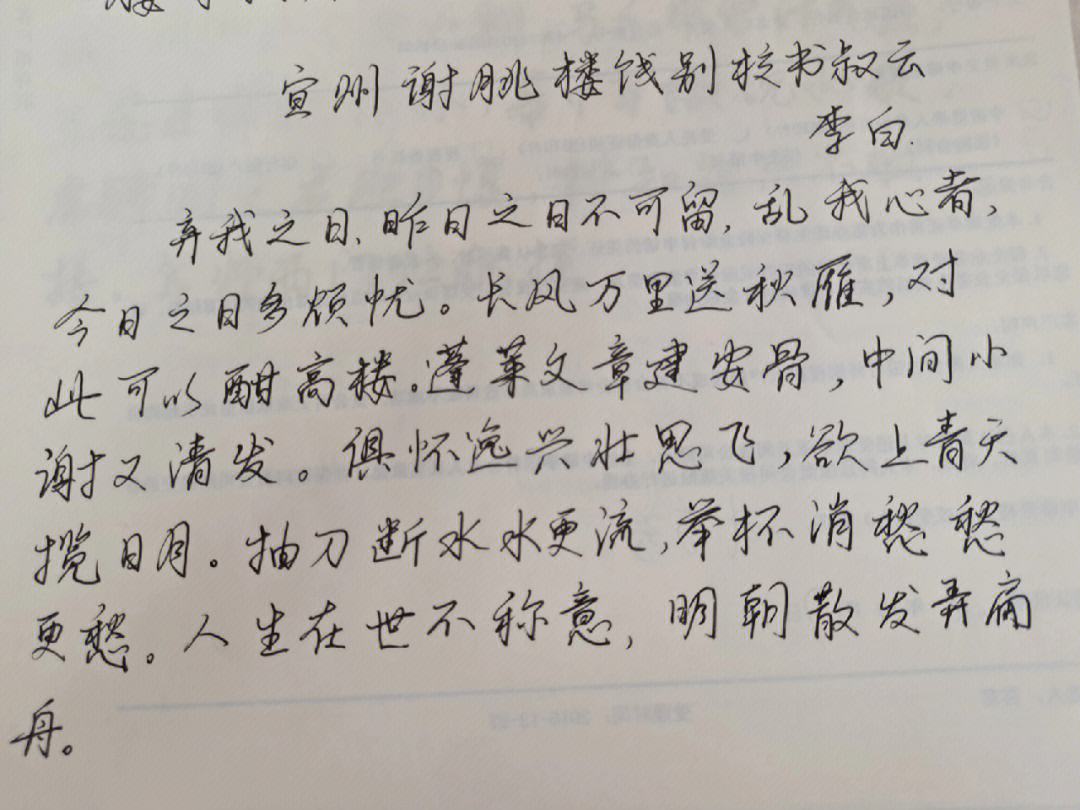 宣州谢朓楼饯别校书叔云
李白.
弃我之日、昨日之日不可留，乱我心者，
今日之日多烦忧。长风万里送秋雁，对
此可以酣高楼。蓬莱文章建安骨，中间小
谢又清发。俱怀逸兴壮思飞，欲上青天
揽日月。抽刀断水水更流，举杯消愁愁
更愁。人生在世不称意，明朝散发弄扁
舟。